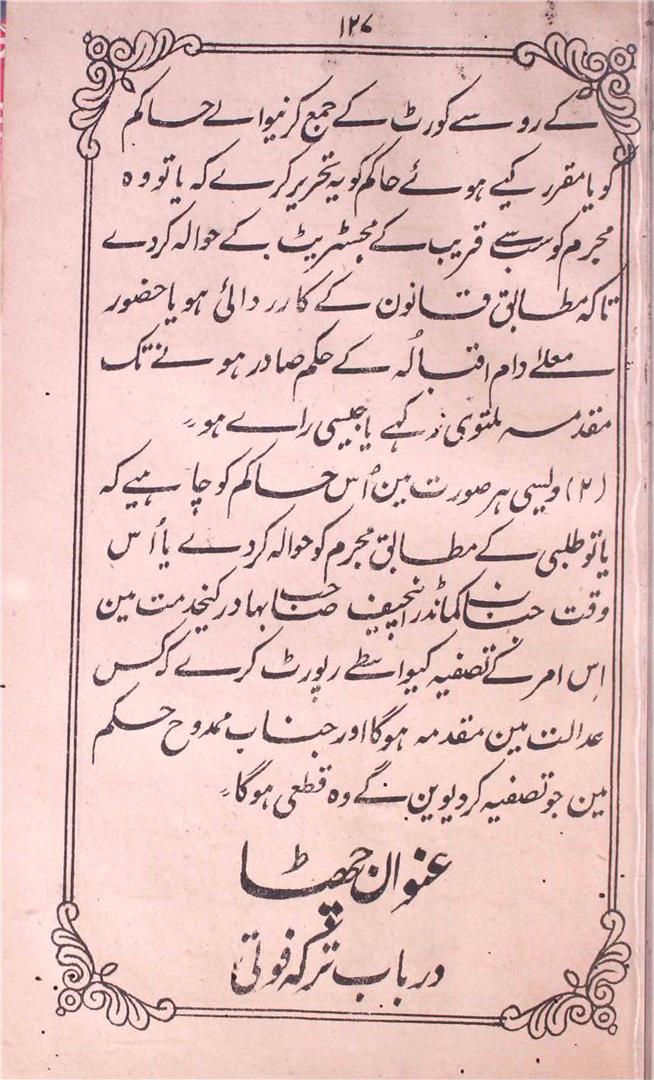 ۱۲۷
کے رو سے کورٹ کے جمع کرنیوالے حاکم
کو یا مقرر کیے ہوئے حاکم کو یہ تحریر کرے کہ یا تو وہ
مجرم کو سب سے قریب کے مجسٹریٹ کے حوالہ کردے
تاکہ مطابق قانون کے کارروائی ہو یا حضور
معلےٰ دام اقبالُہ کے حکم صادر ہونے تک
مقدمہ ملتوی رہے یا جیسی راے ہو۔
(۲) ویسی ہر صورت مین اُس حاکم کو چاہیے کہ
یا تو طلبی کے مطابق مجرم کو حوالہ کردے یا اُس
وقت جناب کمانڈر انچیف صاحب بہادر کیخدمت مین
اِس امر کے تصفیہ کیواسطے رپورٹ کرے کہ کس
عدالت مین مقدمہ ہوگا اور جناب ممدوح حکم
مین جو تصفیہ کردیوین گے وہ قطعی ہوگا۔
عنوان چھٹا
در باب ترکہ فوتی